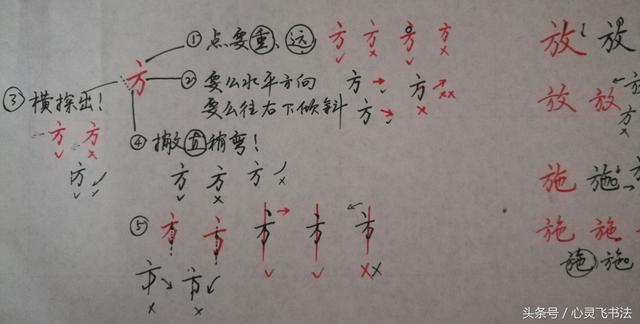 ①点要重、远
方 方 方 方
方
②要么水平方向
要么往右下倾斜
方 方
方
③横探出！
方 方
方
④撇直稍弯！
方 方 方
⑤方 方 方 方 方
方 方
放 放
放 放
方
施 施
施 施 施
施 施
头条号／心灵飞书法